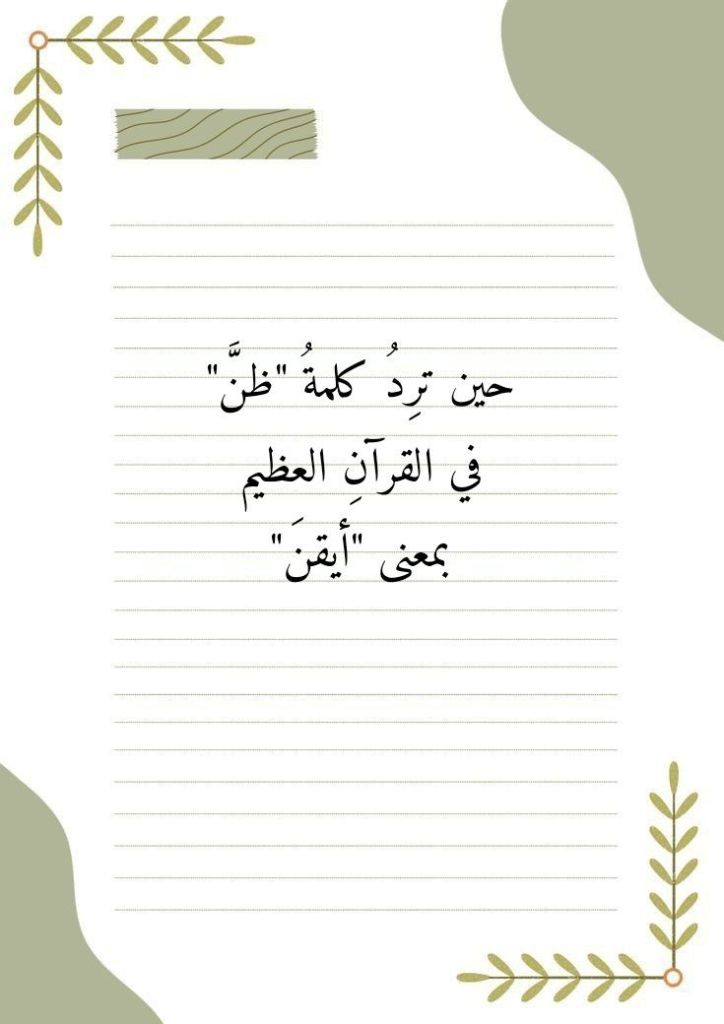 حين ترِدُ كلمةُ "ظنَّ"
في القرآنِ العظيم
بمعنى "أيقنَ"